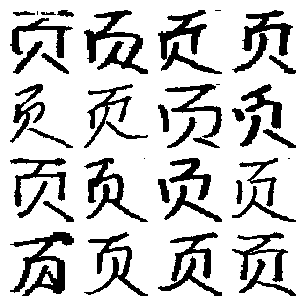 页页页页
页页页页
页页页页
页页页页